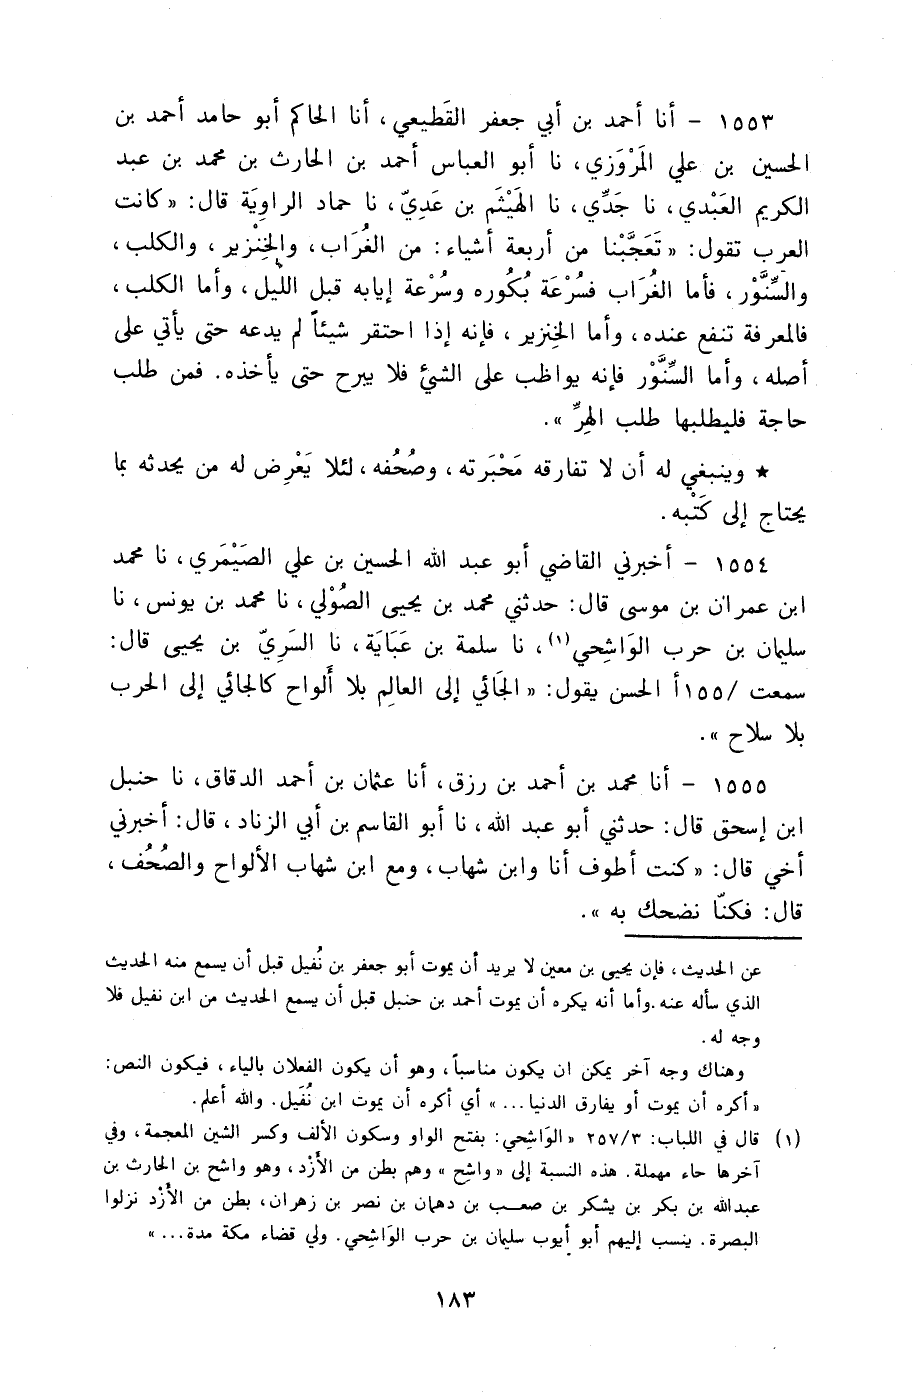 ١٥٥٣ - أنا أحمد بن أبي جعفر القَطيعي، أنا الحاكم أبو حامد أحمد بن
الحسين بن علي المَرْوَزي، نا أبو العباس أحمد بن الحارث بن محمد بن عبد
الكريم العَبْدي، نا جَدِّي، نا الهَيْثَم بن عَدِيّ، نا حماد الراوِيَة قال: «كانت
العرب تقول: «تَعَجَّبْنا من أربعة أشياء: من الغُرَاب، والخِنْزير، والكلب،
والسِّنَّوْر، فأما الغُرَاب فسُرْعَة بُكُوره وسُرْعة إيابه قبل الليل، وأما الكلب،
فالمعرفة تنفع عنده، وأما الخِنزير، فإنه إذا احتقر شيئاً لم يدعه حتى يأتي على
أصله، وأما السِّنَّوْر فإنه يواظب على الشئ فلا يبرح حتى يأخذه. فمن طلب
حاجة فليطلبها طلب الهِرِّ».
★ وينبغي له أن لا تفارقه مَحْبَرته، وصُحُفه، لئلا يَعْرِض له من يحدثه بما
يحتاج إلى كَتْبه.
١٥٥٤ - أخبرني القاضي أبو عبد الله الحسين بن علي الصَيْمَري، نا محمد
ابن عمران بن موسى قال: حدثني محمد بن يحيى الصُوْلي، نا محمد بن يونس، نا
سليمان بن حرب الوَاشِحي(١)، نا سلمة بن عَبَايَة، نا السَرِيّ بن يحيى قال:
سمعت /١٥٥أ الحسن يقول: «الجَائي إلى العالِم بلا أَلواح كالجائي إلى الحرب
بلا سلاح».
١٥٥٥ - أنا محمد بن أحمد بن رزق، أنا عثمان بن أحمد الدقاق، نا حنبل
ابن إسحق قال: حدثني أبو عبد الله، نا أبو القاسم بن أبي الزناد، قال: أخبرني
أخي قال: «كنت أطوف أنا وابن شهاب، ومع ابن شهاب الألواح والصُحُف،
قال: فكنّا نضحك به».
عن الحديث، فإن يحيى بن معين لا يريد أن يموت أبو جعفر بن نُفيل قبل أن يسمع منه الحديث
الذي سأله عنه. وأما أنه يكره أن يموت أحمد بن حنبل قبل أن يسمع الحديث من ابن نفيل فلا
وجه له.
وهناك وجه آخر يمكن ان يكون مناسباً، وهو أن يكون الفعلان بالياء، فيكون النص:
«أكره أن يموت أو يفارق الدنيا...» أي أكره أن يموت ابن نُفَيل. والله أعلم.
(١) قال في اللباب: ٢٥٧/٣ «الوَاشِحي: بفتح الواو وسكون الألف وكسر الشين المعجمة، وفي
آخرها حاء مهملة. هذه النسبة إلى «واشِح» وهم بطن من الأَزْد، وهو واشح بن الحارث بن
عبدالله بن بكر بن يشكر بن صعب بن دهمان بن نصر بن زهران، بطن من الأَزْد نزلوا
البصرة. ينسب إليهم أبو أيوب سليمان بن حرب الوَاشِحي. ولي قضاء مكة مدة...»
١٨٣